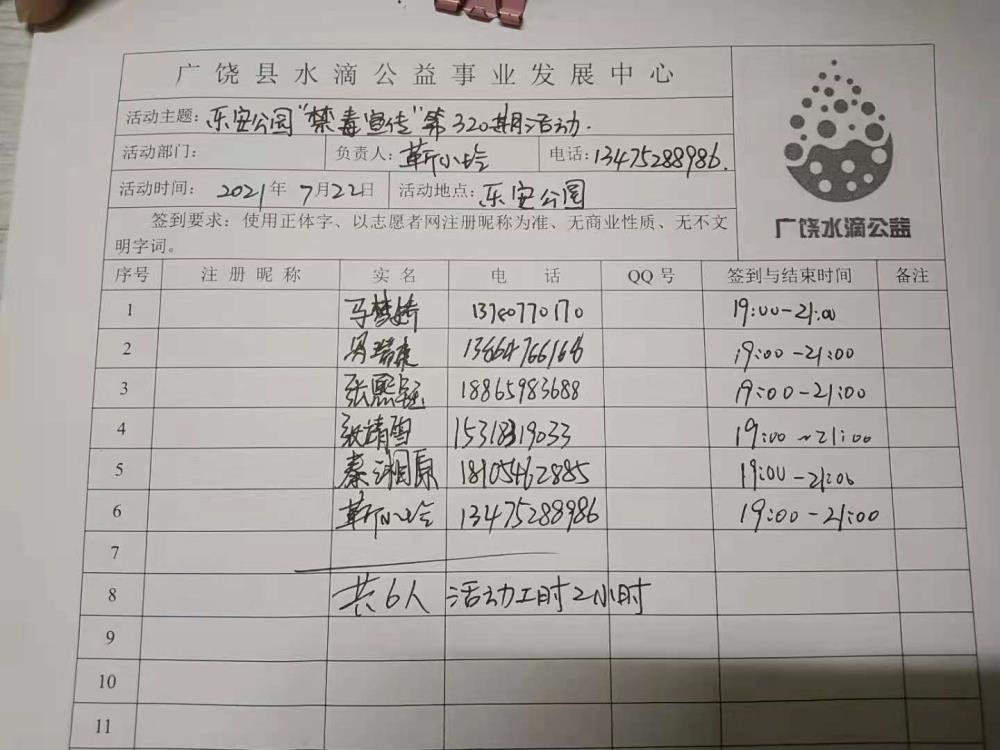 广饶县水滴公益事业发展中心
活动主题：乐安公园“禁毒宣传”第320期活动.
活动部门： 负责人：靳小玲 电话：13475288986.
活动时间： 2021年 7月22日 活动地点：乐安公园
签到要求：使用正体字、以志愿者网注册昵称为准、无商业性质、无不文
明字词。
广饶水滴公益
序号 注册昵称 实名 电话 QQ号 签到与结束时间 备注
1 马梦娇 19:00-21:00
2 19:00-21:00
3 张熙钰 18865983688 19:00-21:00
4 张靖雪 19:00~21:00
5 秦湘原 18105462885 19:00-21:00
6 靳小玲 13475288986 19:00-21:00
7
8 共6人 活动工时2小时
9
10
11